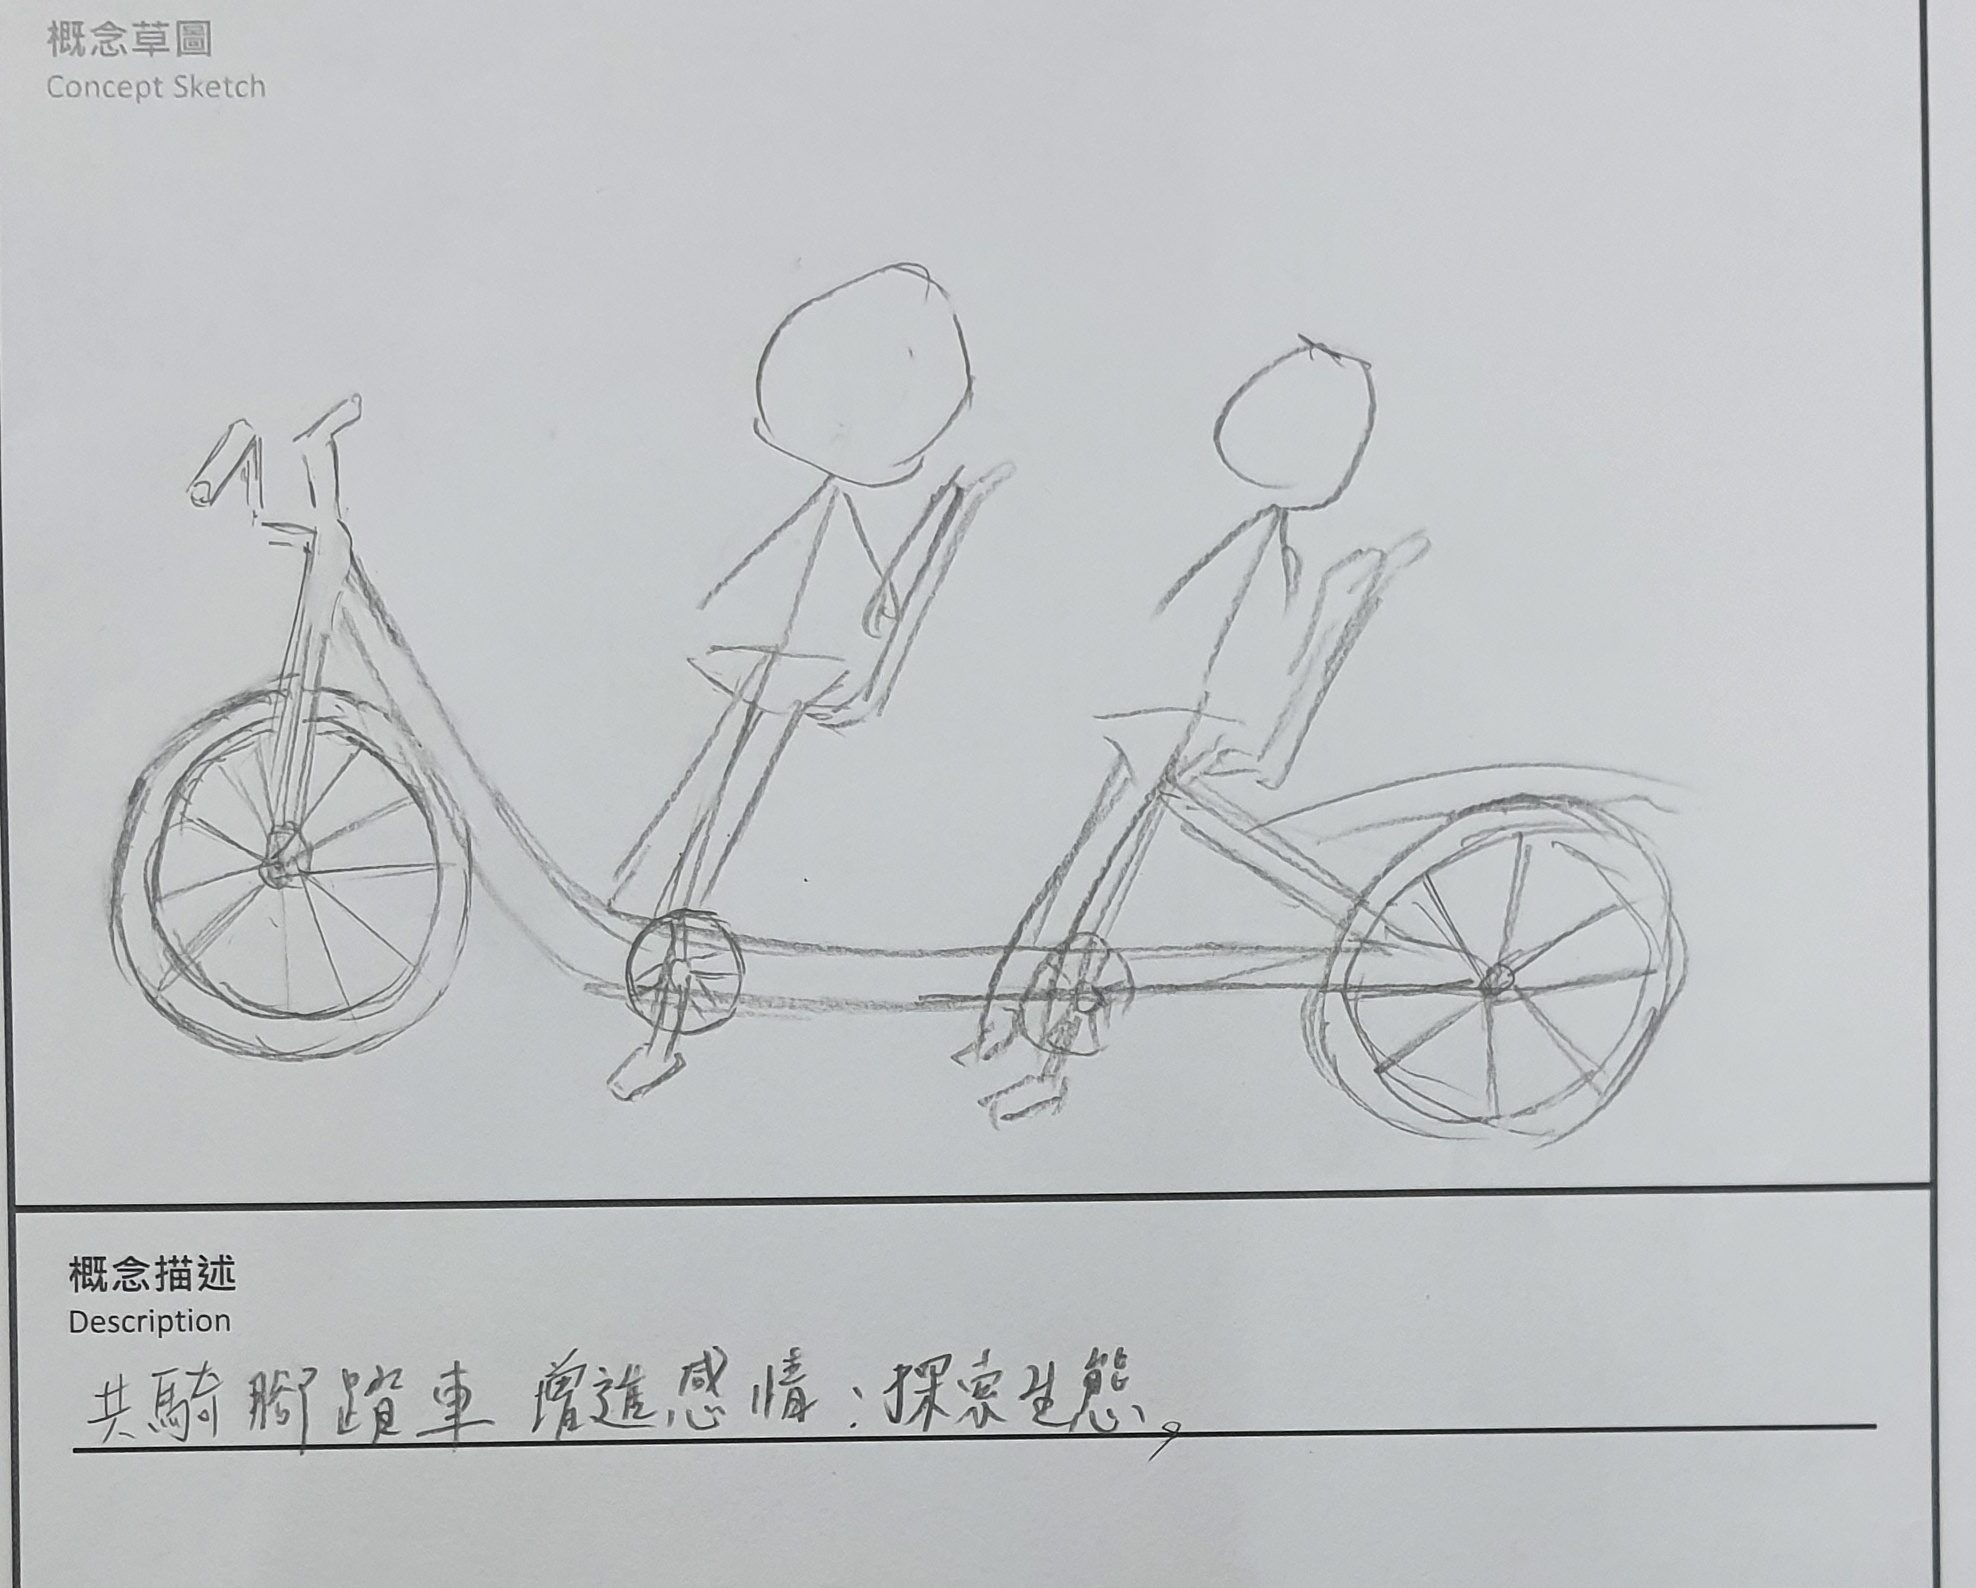 概念草圖
Concept Sketch
概念描述
Description
共騎腳踏車 增進感情;探索生態,